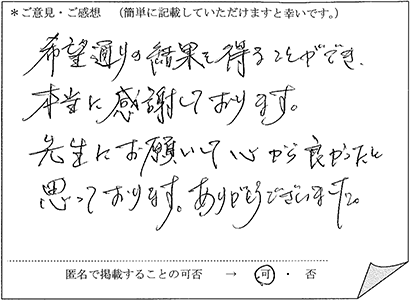 ＊ご意見・ご感想　（簡単に記載していただけますと幸いです。）
希望通りの結果を得ることができ、
本当に感謝しております。
先生にお願いして心から良かったと
思っております。ありがとうございました。
匿名で掲載することの可否　→　可　・　否